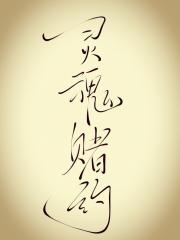 灵魂赌约